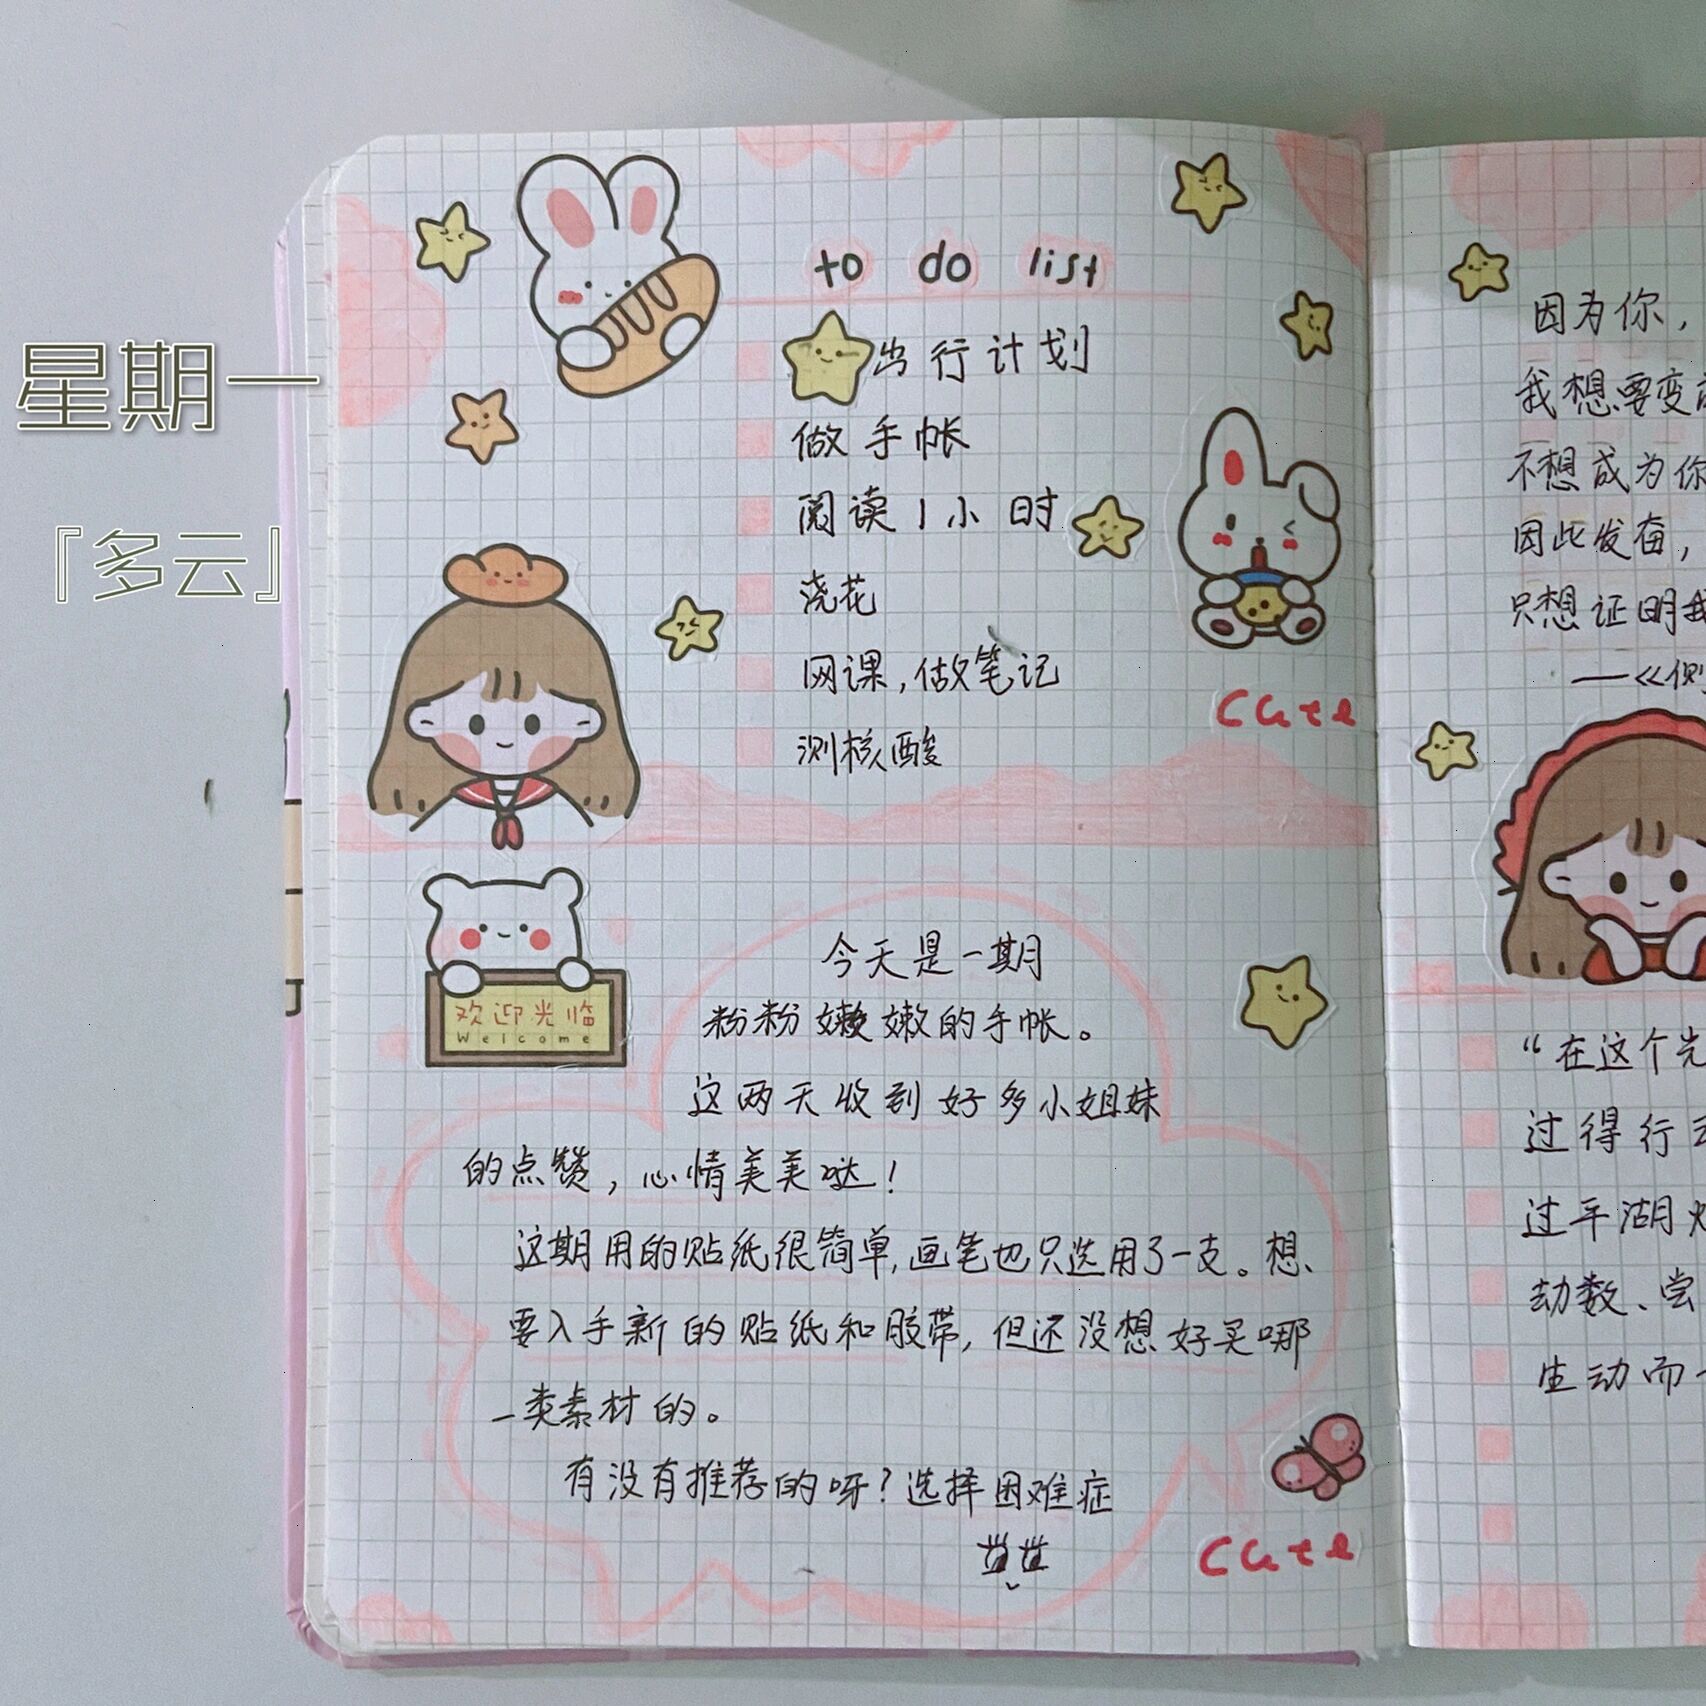 星期一
『多云』
to do list
出行计划
做手帐
阅读1小时
浇花
网课,做笔记
测核酸
Cute
欢迎光临
Welcome
今天是一期
粉粉嫩嫩的手帐。
这两天收到好多小姐妹
的点赞,心情美美哒!
这期用的贴纸很简单,画笔也只选用了一支。想、
要入手新的贴纸和胶带,但还没想好买哪
一类素材的。
有没有推荐的呀?选择困难症
Cute
因为你,
我想要变
不想成为你
因此发奋,
只想证明我
——《侧
“在这个光
过得行云
过平湖
劫数、尝
生动而